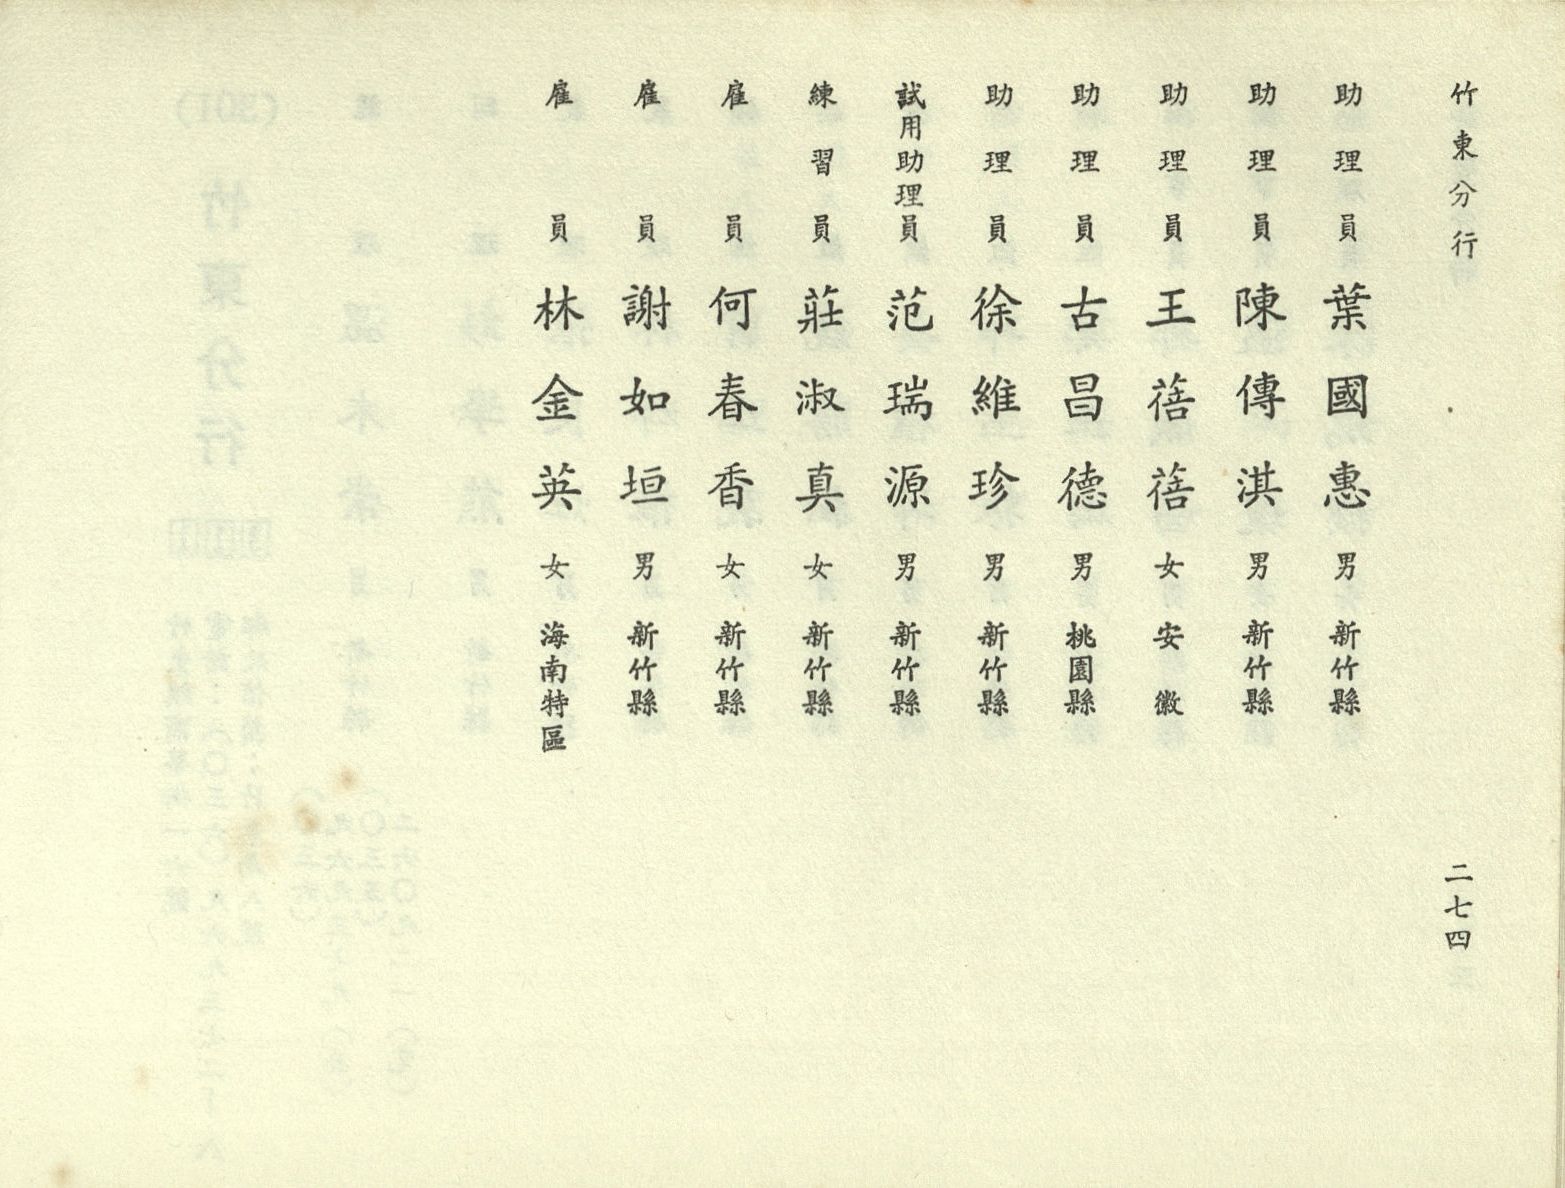 竹東分行 二七四
助理員 葉國惠 男 新竹縣
助理員 陳傳淇 男 新竹縣
助理員 王蓓蓓 女 安徽
助理員 古昌德 男 桃園縣
助理員 徐維珍 男 新竹縣
試用助理員 范瑞源 男 新竹縣
練習員 莊淑真 女 新竹縣
雇員 何春香 女 新竹縣
雇員 謝如垣 男 新竹縣
雇員 林金英 女 海南特區